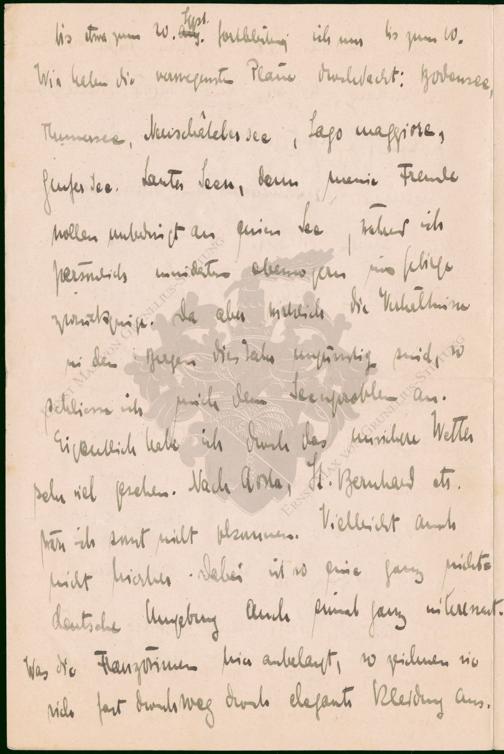 bis etwa zum 20. Sept. fortbleiben ich nur bis zum 10.
Wir haben die verwegensten Pläne durchdacht: Bodensee,
Thunersee, Neuschâteler see, Lago maggiore,
Genfer See. Lauter Seen, denn meine Freunde
wollen unbedingt an einen See, während ich
persönlich mindestens ebensogern ins Gebirge
zurückginge. Da aber wirklich die Verhältnisse
in den Bergen dies Jahr ungünstig sind, so
schliesse ich mich dem Seenproblem an.
Eigentlich habe ich durch das unsichere Wetter
sehr viel gesehen. Nach Aosta, St. Bernhard etc.
wäre ich sonst nicht gekommen. Vielleicht auch
nicht hierher. Dabei ist so eine ganz nichts
deutsche Umgebung auch einmal ganz interessant.
Was die Französinnen hier anbelangt, so zeichnen sie
sich fast durchweg durch elegante Kleidung aus.
ERNST MAX VON GRUNELIUS-STIFTUNG
ERNST MAX VON GRUNELIUS-STIFTUNG